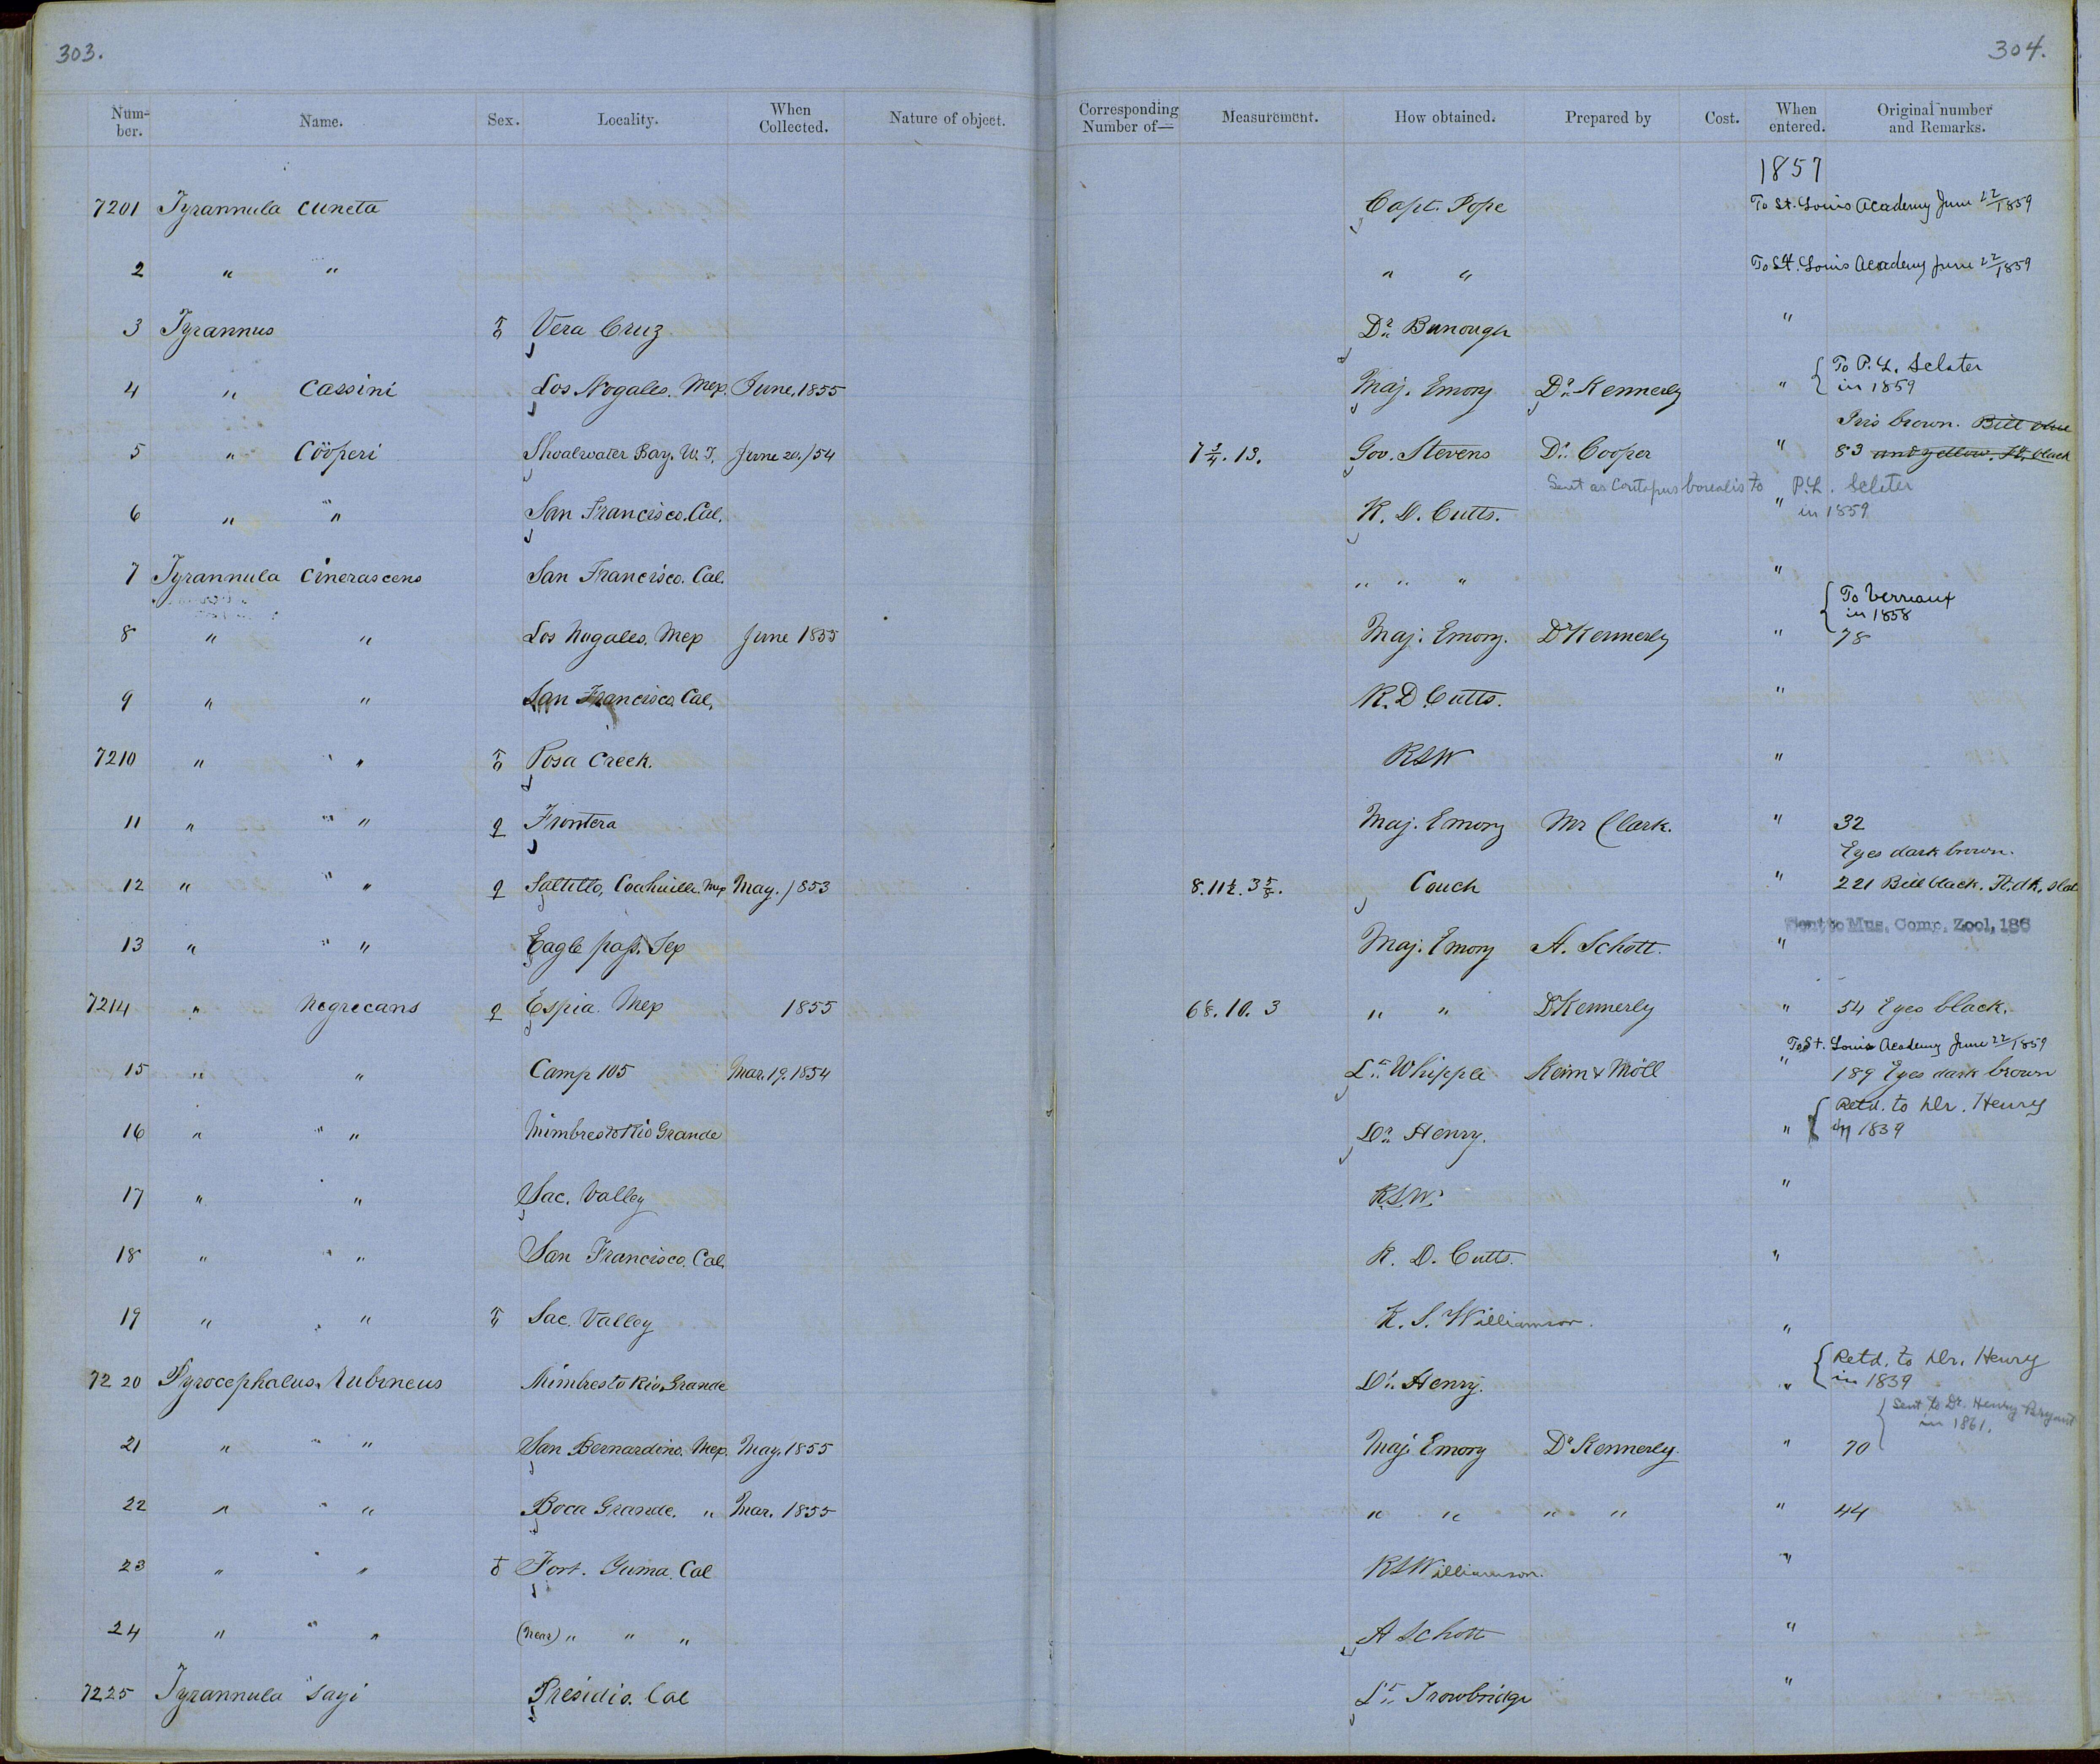 303.
304.
Num-ber. Name. Sex. Locality. When Collected. Nature of object. Corresponding Number of— Measurement. How obtained. Prepared by Cost. When entered. Original number and Remarks.
1857
7201 Tyrannula cuneta Capt. Pope To St. Louis Academy June 22/1859
2 " " " " To St. Louis Academy June 22/1859
3 Tyrannus ♂ Vera Cruz Dr. "
4 " Cassini Los Nogales. Mex. June, 1855 Maj. Emory Dr. Kennerly " { To P. L. Sclater in 1859
Iris brown. Bill blue
5 " Cööperi Shoalwater Bay. W. T. June 20, /54 7 3/4. 13. Gov. Stevens Dr. Cooper " 83 and yellow. Ft. black
Sent as Contopus borealis to P.L. Sclater in 1859
6 " " San Francisco. Cal. R. D. Cutts. "
7 Tyrannula Cinerascens San Francisco. Cal. " " " "
{ To Verreaux in 1858
8 " " Los Nogales. Mex June 1855 Maj. Emory. Dr Kennerly " 78
9 " " San Francisco Cal. R. D Cutts. "
7210 " " ♂ Posa Creek. RSW "
11 " " ♀ Frontera Maj. Emory Mr Clark. " 32
Eyes dark brown.
12 " " ♀ Saltillo, Coahuila. Mex May. /853 8. 11 1/2. 3 5/8. Couch " 221 Bill black. Ft. dk. slat
Sent to Mus. Comp. Zool, 186
13 " " Eagle pass. Tex Maj. Emory A. Schott. "
7214 " Negrecans ♀ Espia. Mex 1855 6 1/8. 10. 3 " " Dr Kennerly " 54 Eyes black.
To St. Louis Academy June 22/1859
15 " " Camp 105 Mar. 19. 1854 Lt. Whipple Keim & Moll " 189 Eyes dark brown
16 " " Mimbres to Rio Grande Dr. Henry. " { Retd. to Dr. Henry in 1839
17 " " Sac. Valley R.S.W. "
18 " " San Francisco. Cal. R. D. Cutts. "
19 " " ♂ Sac. Valley R. S. Williamson. "
7220 Pyrocephalus. rubineus Mimbres to Rio Grande Dr. Henry. " { Retd. to Dr. Henry in 1839
{ Sent to Dr. Henry Bryant in 1861.
21 " " San Bernardino. Mex. May. 1855 Maj Emory Dr Kennerly. " 70
22 " " Boca Grande. " Mar. 1855 " " " " " 44
23 " " ♂ Fort. Yuma. Cal RS Williamson. "
24 " " (near) " " " A Schott "
7225 Tyrannula Sayi Presidio. Cal Lt. Trowbridge "